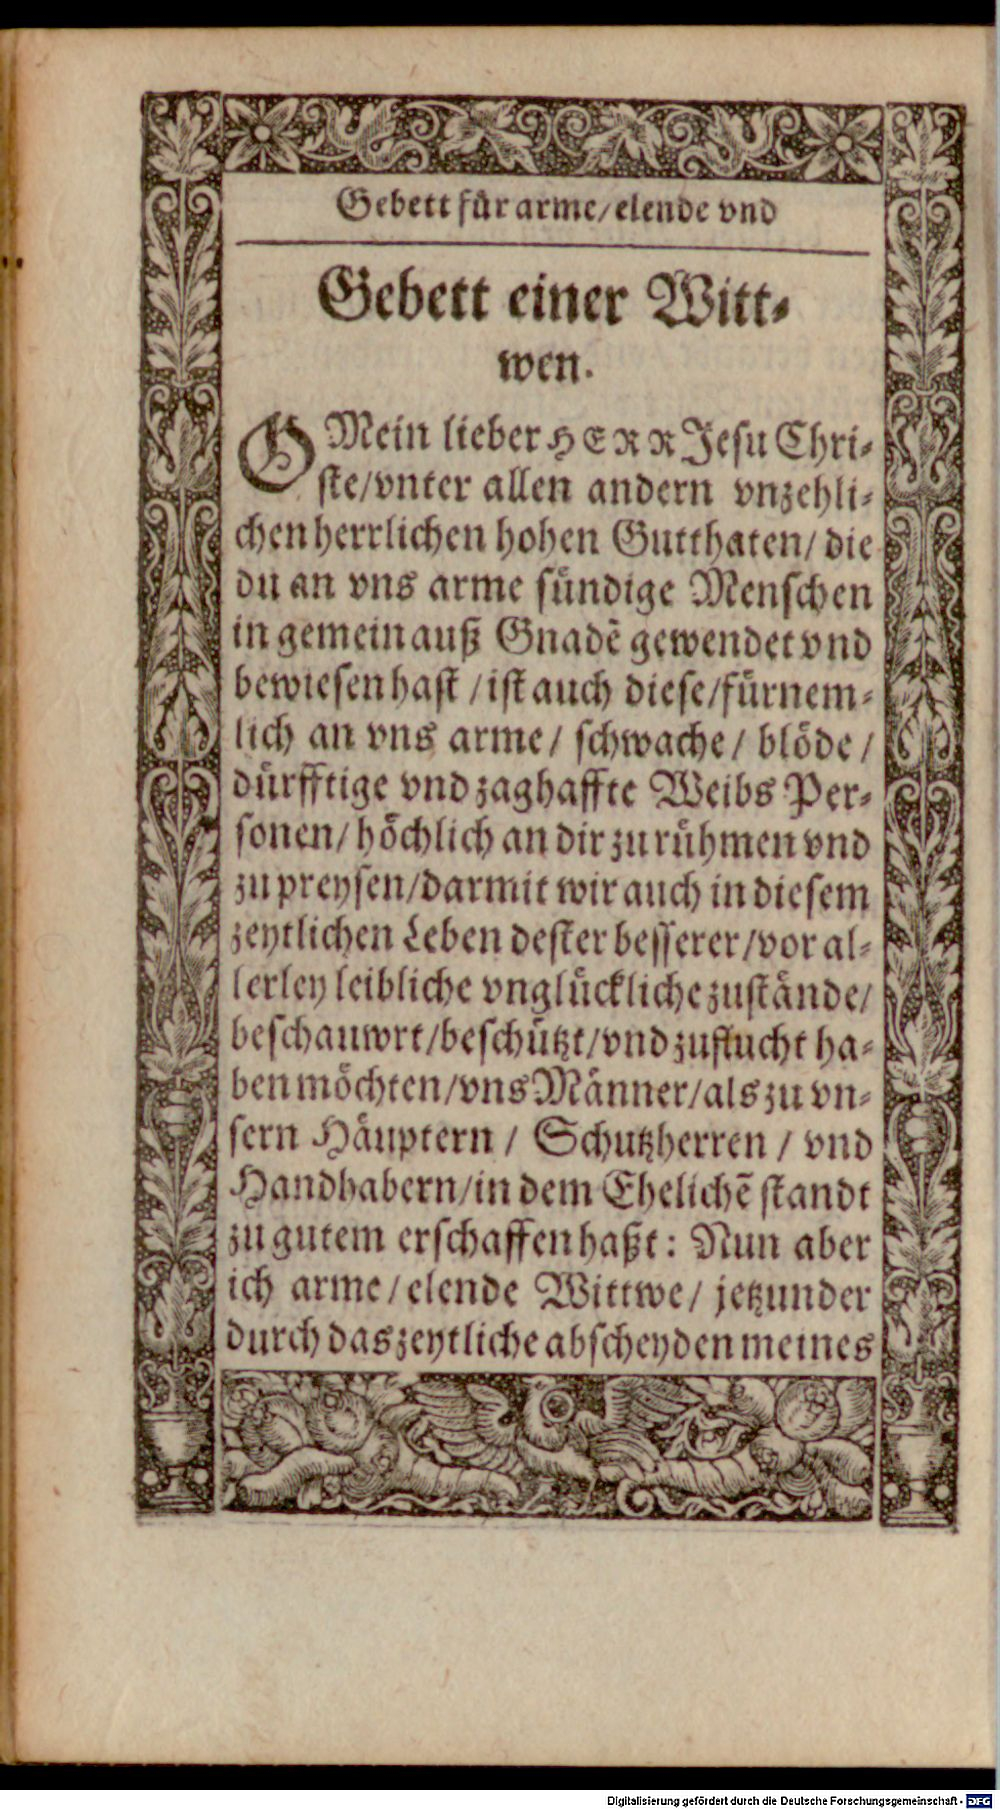 Gebett für arme/ elende vnd
Gebett einer Witt⸗
wen.
O Mein lieber HERR Jesu Chri⸗
ste/ vnter allen andern vnzehli⸗
chen herrlichen hohen Gutthaten/ die
du an vns arme sündige Menschen
in gemein auß Gnadẽ gewendet vnd
bewiesen hast / ist auch diese/ fürnem⸗
lich an vns arme/ schwache/ blöde/
dürfftige vnd zaghaffte Weibs Per⸗
sonen/ höchlich an dir zu rühmen vnd
zu preysen/ darmit wir auch in diesem
zeytlichen Leben dester besserer/ vor al⸗
lerley leibliche vnglückliche zustände/
beschauwrt/ beschützt/ vnd zuflucht ha⸗
ben möchten/ vns Männer/ als zu vn⸗
sern Häuptern / Schutzherren / vnd
Handhabern/ in dem Ehelichẽ standt
zu gutem erschaffen haßt: Nun aber
ich arme/ elende Wittwe/ jetzunder
durch das zeytliche abscheyden meines
Digitalisierung gefördert durch die Deutsche Forschungsgemeinschaft - DFG